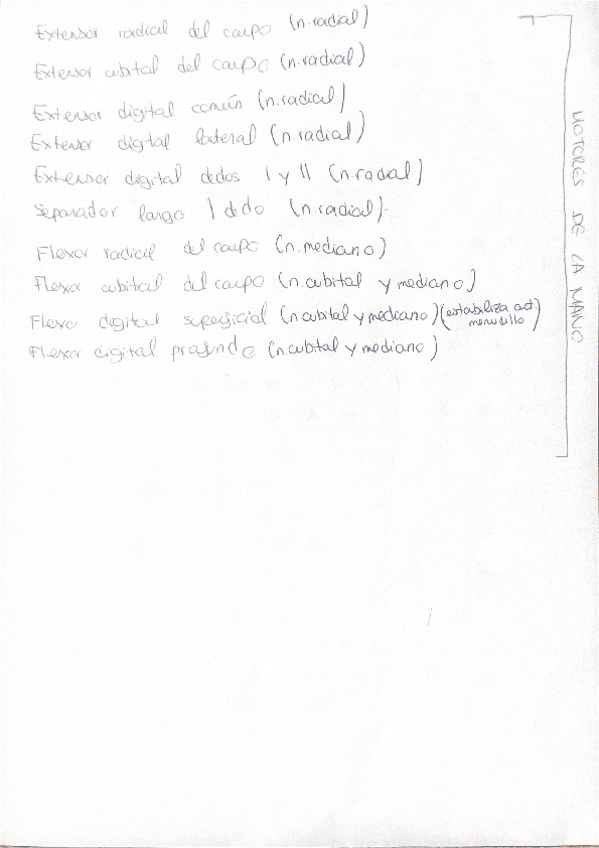 Extensor radial del carpo (n.radial)
Extensor cubital del carpo (n.radial)
Extensor digital común (n.radial)
Extensor digital lateral (n.radial)
Extensor digital dedos I y II (n.radial)
Separador largo I dedo (n.radial).
Flexor radial del carpo (n.mediano)
Flexor cubital del carpo (n.cubital y mediano)
Flexor digital superficial (n.cubital y mediano) (estabiliza act.
menudillo)
Flexor digital profundo (n.cubital y mediano)
MOTORES DE LA MANO